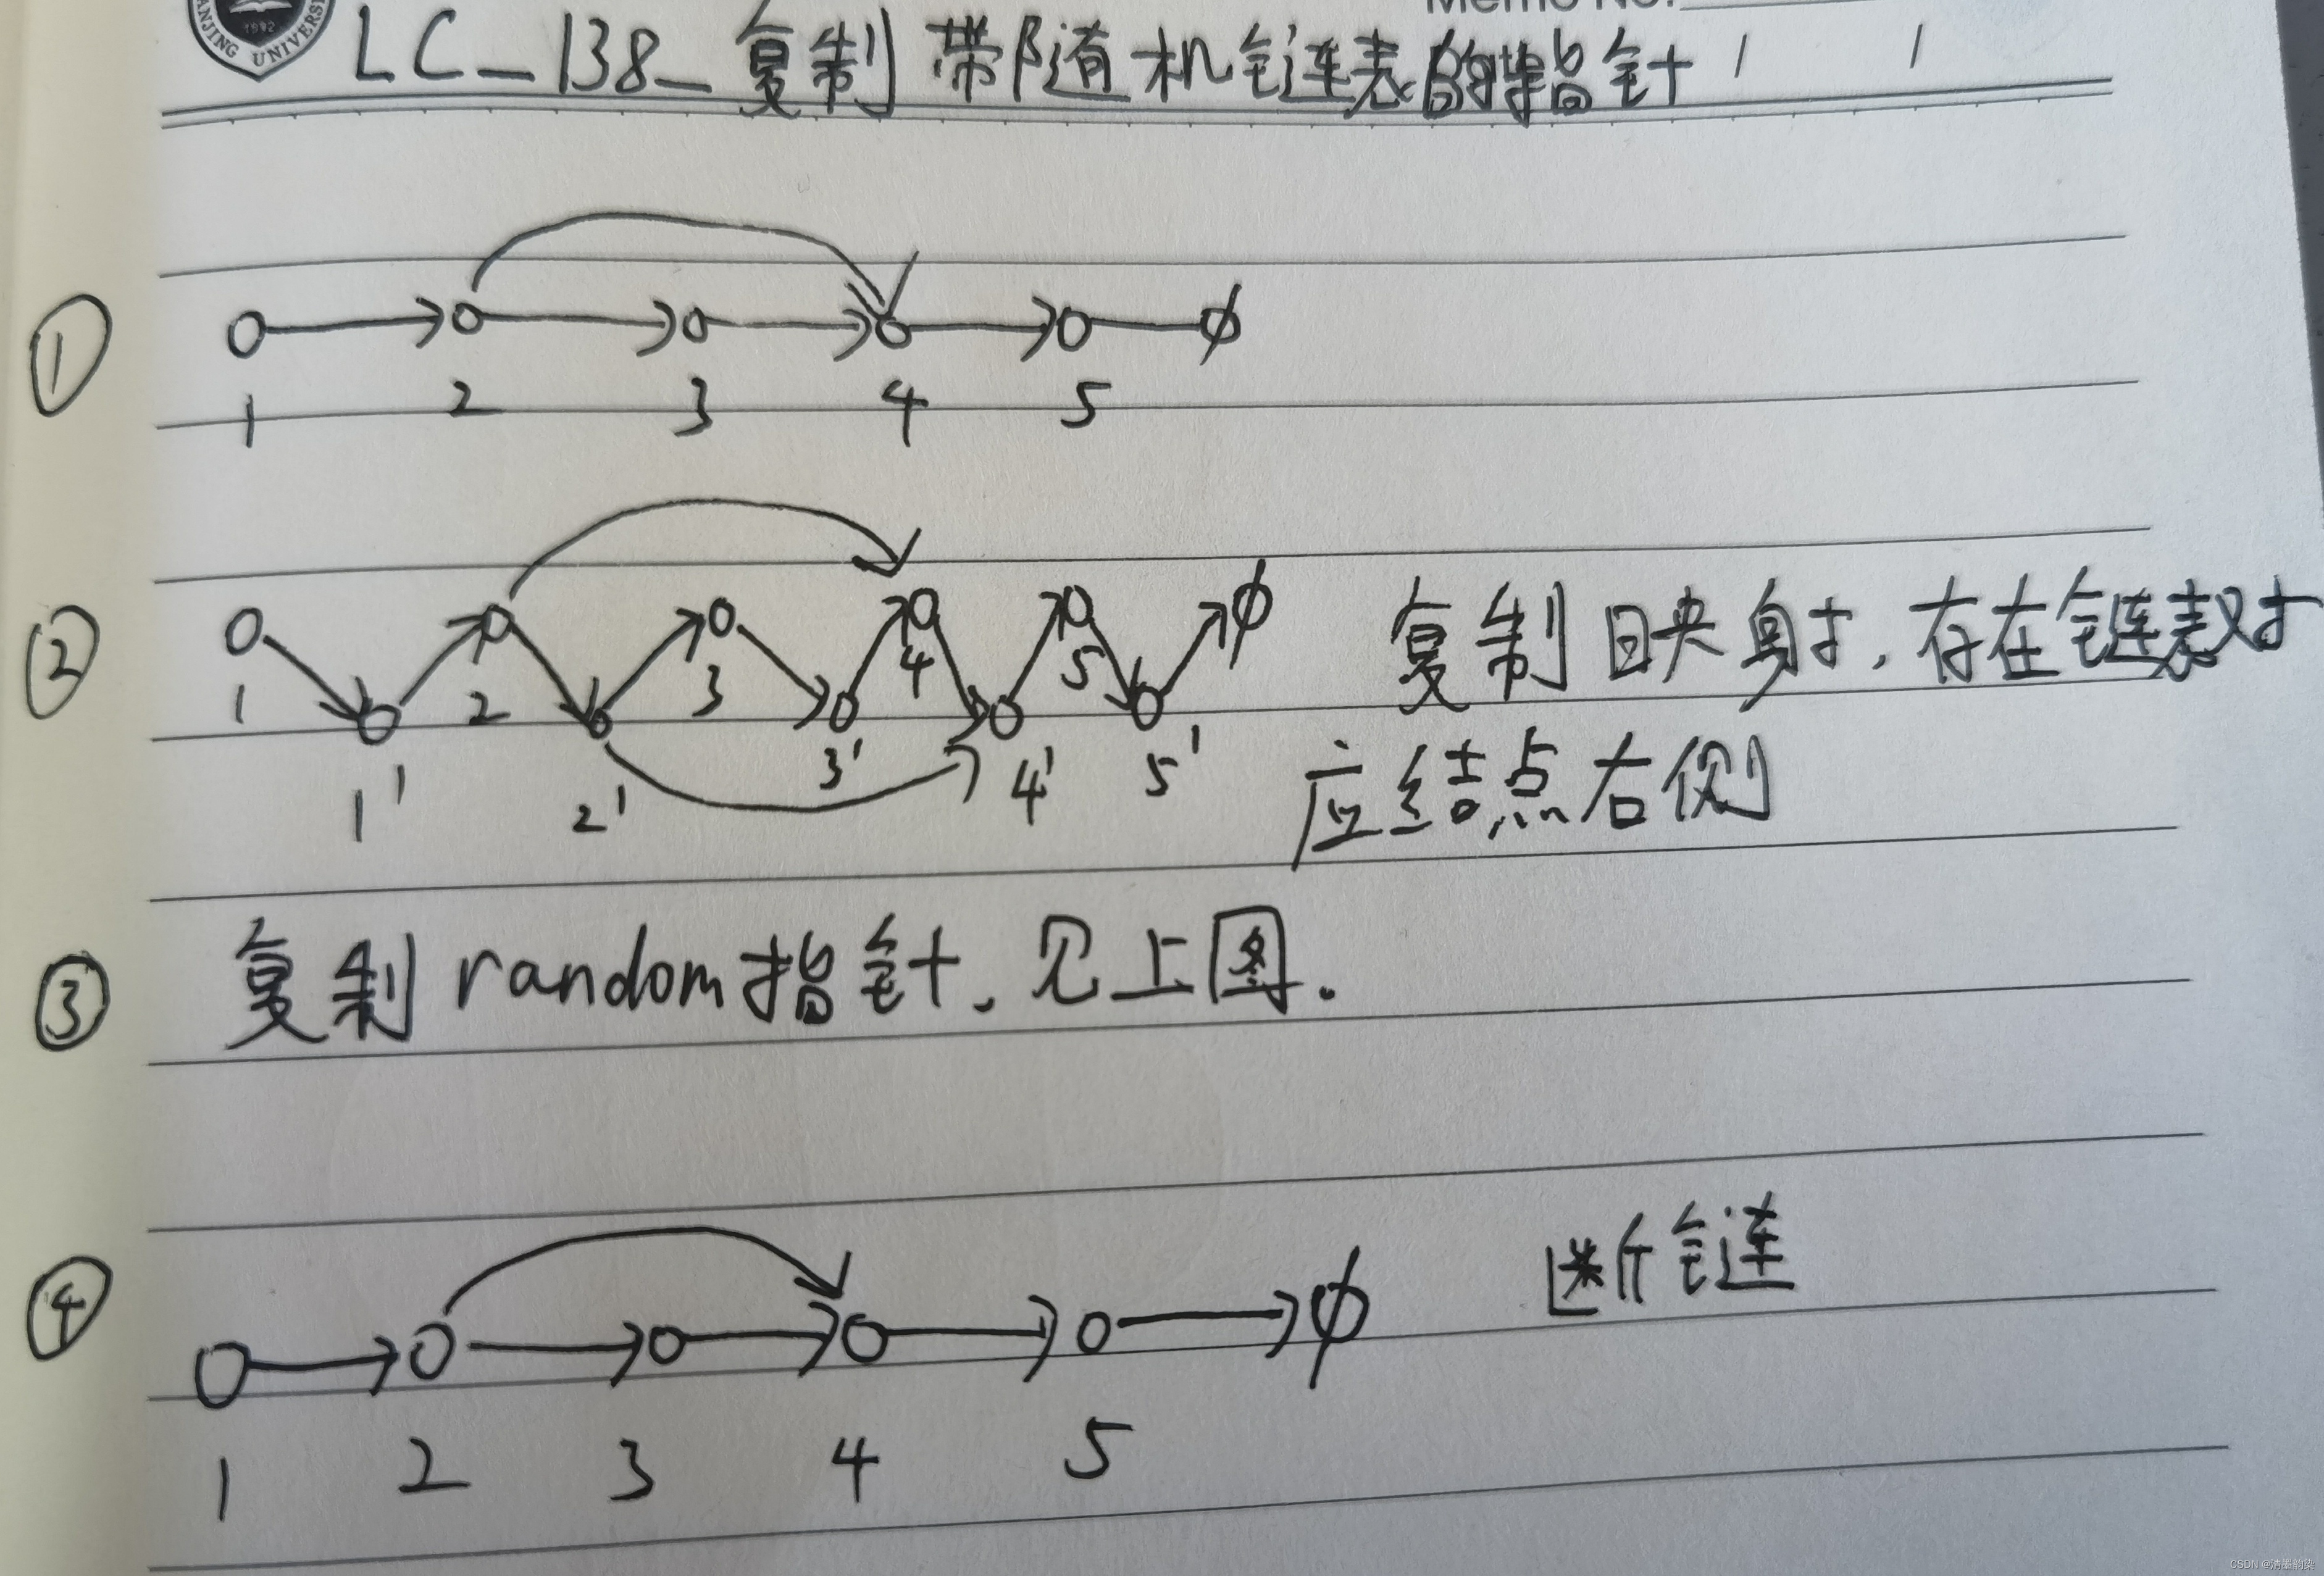 1902
NANJING UNIVERSI
Memo No.
LC_138_复制带随机链表的指针
①
1 2 3 4 5
②
1 2 3 4 5
1' 2' 3' 4' 5'
复制映射,存在链表对
应结点右侧
③ 复制random指针,见上图.
④
断链
1 2 3 4 5
CSDN @清墨韵染